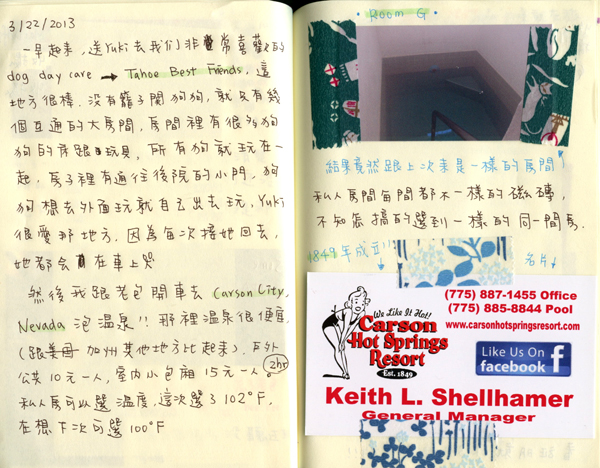 3/22/2013
一早起來, 送Yuki去我們非常喜歡的
dog day care → Tahoe Best Friends, 這
地方很棒. 沒有籠子關狗狗, 就只有幾
個互通的大房間, 房間裡有很多狗
狗的床跟玩具, 所有狗就玩在一
起. 房子裡有通往後院的小門, 狗
狗想去外面玩就自己出去玩, Yuki
很愛那地方. 因為每次接她回去,
她都會在車上哭
然後我跟老包開車去 Carson City,
Nevada 泡溫泉!! 那裡溫泉很便宜
(跟美國 加州其他地方比起來). 戶外
公共 10元一人, 室內小包廂 15元一人。
2hr
私人房可以選溫度, 這次選了 102°F,
在想下次可選 100°F
• Room G •
結果竟然跟上次來是一樣的房間
私人房間每間都不一樣的磁磚,
不知怎搞的選到一樣的同一間房.
1849年成立!!
名片↓
(775) 887-1455 Office
(775) 885-8844 Pool
www.carsonhotspringsresort.com
We Like It Hot!
Carson
Hot Springs
Resort
Est. 1849
Like Us On
facebook
f
Keith L. Shellhamer
General Manager